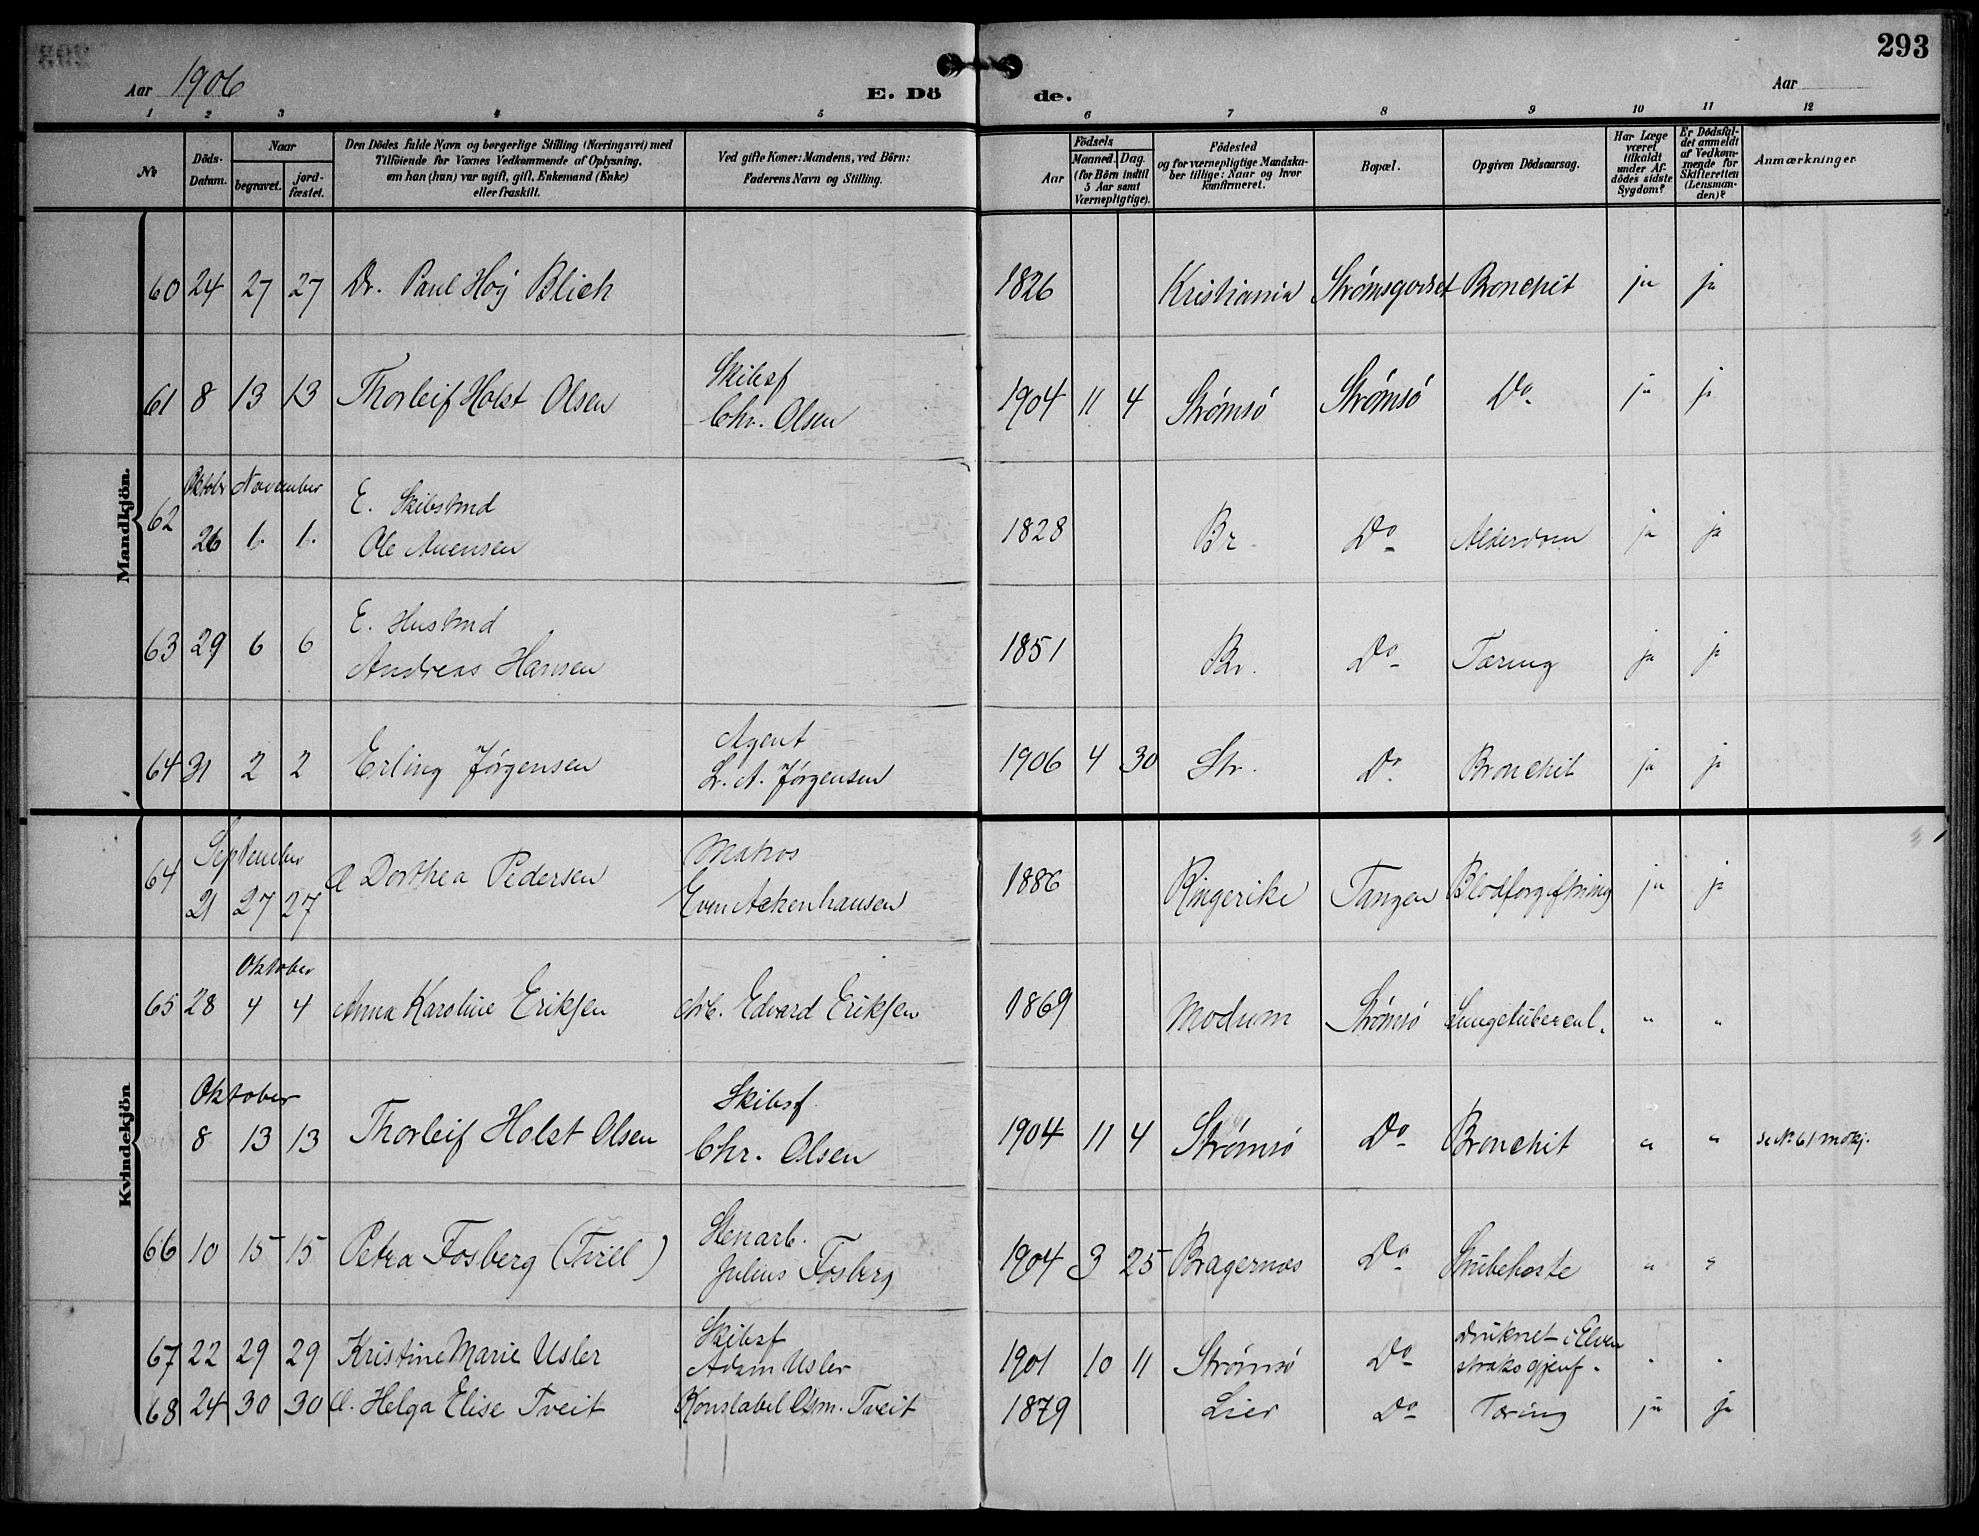 293
Aar 1906
E. Dö
de.
Aar
1 2 3 4 5 6 7 8 9 10 11 12
No
Döds-
Datum.
Naar
begravet.
jord-
fæstet.
Den Dödes fulde Navn og borgerlige Stilling (Næringsvei) med
Tilföiende for Voxnes Vedkommende af Oplysning,
om han (hun) var ugift, gift, Enkemand (Enke)
eller fraskilt.
Ved gifte Koner: Mandens, ved Börn:
Faderens Navn og Stilling.
Födsels
Aar
Maaned. Dag.
(for Börn indtil
5 Aar samt
Værnepligtige).
Födested
og for værnepligtige Mandska-
ber tillige: Naar og hvor
konfirmeret.
Bopæl.
Opgiven Dödsaarsag.
Har Læge
været
tilkaldt
under Af-
dödes sidste
Sygdom?
Er Dödsfal-
det anmeldt
af Vedkom-
mende for
Skifteretten
(Lensman-
den)?
Anmærkninger
Mandkjön.
60 24 27 27 Dr. Paul Høy Blich 1826 Kristiania Strømsgodset Bronchit ja ja
Skibsf
61 8 13 13 Thorleif Holst Olsen Chr. Olsen 1904 11 4 Strømsø Strømsø Do ja ja
Oktober November
E. Skibstmd
62 26 1. 1. Ole 1828 Br. Do Alderdom ja ja
E. Hustmd
63 29 6 6 Andreas Hansen 1851 Br. Do Tæring ja ja
Agent
64 31 2 2 Erling Jørgensen L. A. Jørgensen 1906 4 30 Str. Do Bronchit ja ja
Kvindekjön
September
Matros
64 21 27 27 Dorthea Pedersen Even 1886 Ringerike Tangen Blodforgiftning ja ja
Oktober
65 28 4 4 Anna Karoline Eriksen Arb. Edvard Eriksen 1869 Modum Strømsø Lungetubercul. " "
Oktober
Skibsf.
8 13 13 Thorleif Holst Olsen Chr. Olsen 1904 11 4 Strømsø Do Bronchit " " se No 61 mdkj.
Stenarb.
66 10 15 15 Petra Fosberg (Tvill) Julius Fosberg 1904 3 25 Bragernæs Do Strubehoste " "
Skibsf
druknet i Elven
67 22 29 29 Kristine Marie Usler Adam Usler 1901 10 11 Strømsø Do straks gjenf. " "
68 24 30 30 Helga Elise Tveit Konstabel Osm. Tveit 1879 Lier Do Tæring ja ja